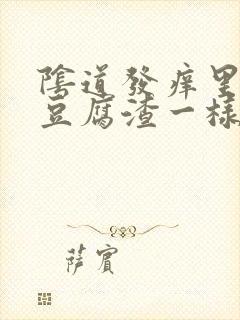 陰道發癢里
豆腐渣一樣
薩賓